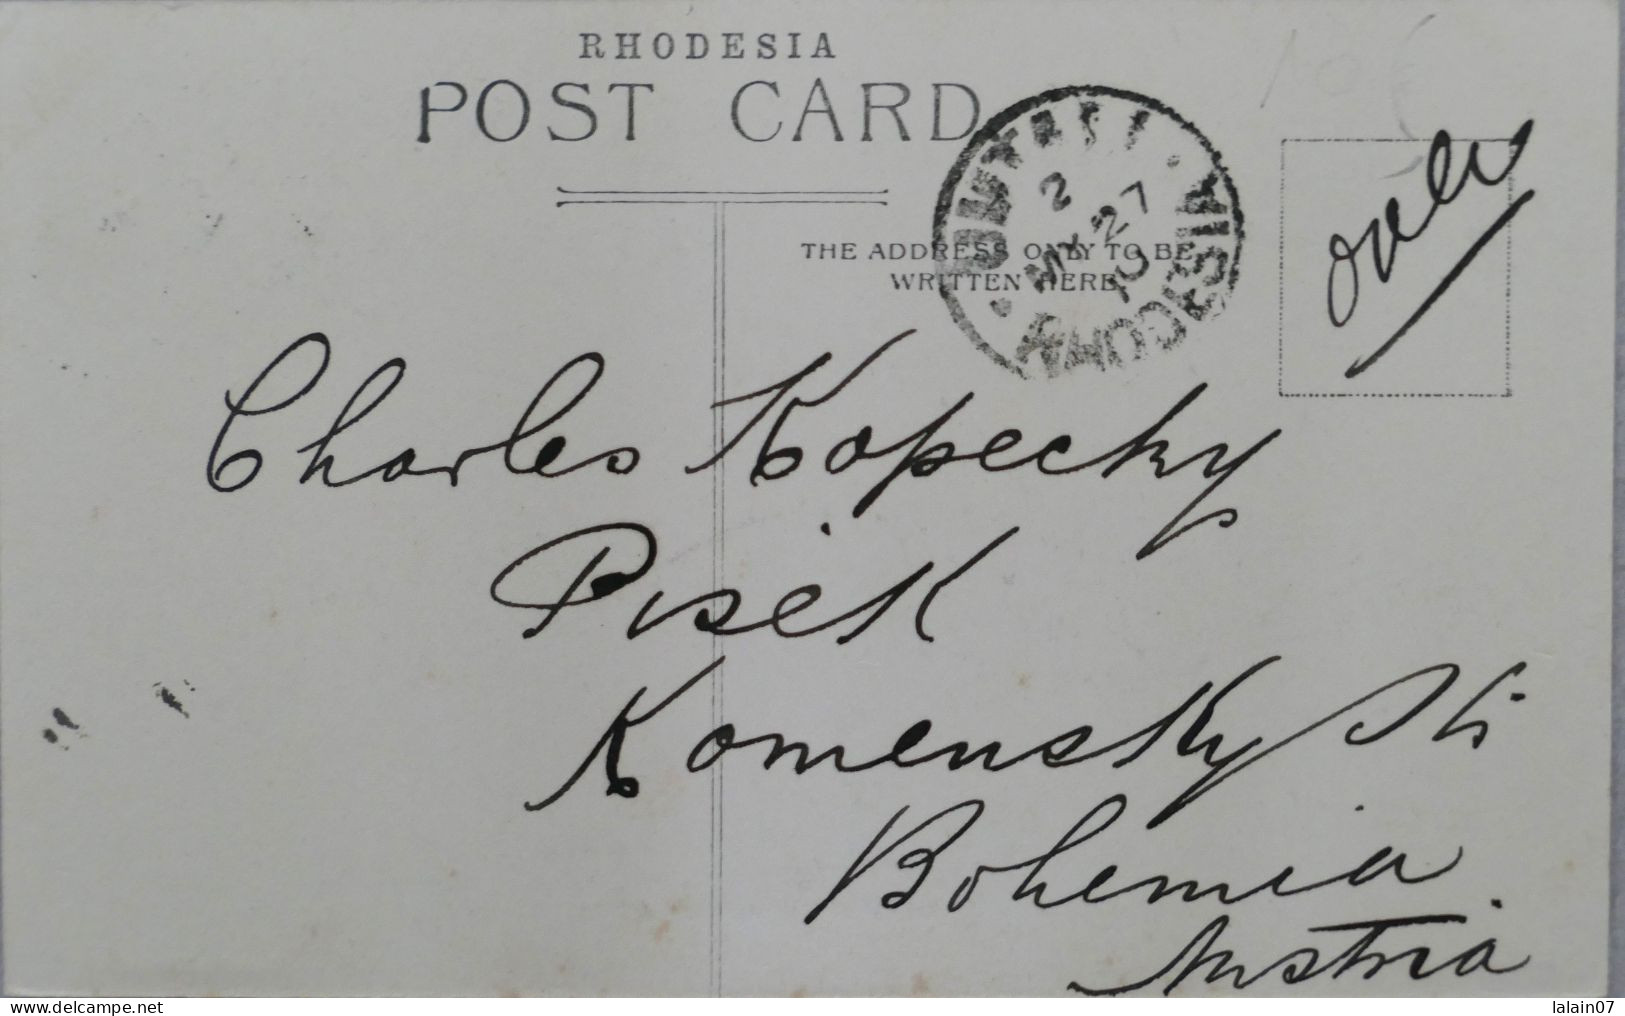 RHODESIA
POST CARD
THE ADDRESS ONLY TO BE
WRITTEN HERE
over
2
MY 27
10
RHODESIA
Charles Kopecky
Pisek
Komensky St:
Bohemia
Austria
www.delcampe.net
lalain07